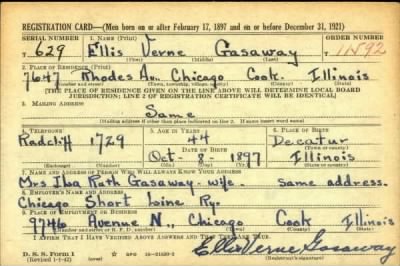 REGISTRATION CARD—(Men born on or after February 17, 1897 and on or before December 31, 1921)
SERIAL NUMBER 1. NAME (Print) ORDER NUMBER
T 629 Ellis Verne Gasaway 11592
(First) (Middle) (Last)
2. PLACE OF RESIDENCE (Print)
7647 Rhodes Av. Chicago Cook Illinois
(Number and street) (Town, township, village, or city) (County) (State)
[THE PLACE OF RESIDENCE GIVEN ON THE LINE ABOVE WILL DETERMINE LOCAL BOARD
JURISDICTION; LINE 2 OF REGISTRATION CERTIFICATE WILL BE IDENTICAL]
3. MAILING ADDRESS
Same
[Mailing address if other than place indicated on line 2. If same insert word same]
4. TELEPHONE 5. AGE IN YEARS 6. PLACE OF BIRTH
44 Decatur
DATE OF BIRTH
1729 Oct. 8 1897 Illinois
(Exchange) (Number) (Mo.) (Day) (Yr.) (State or country)
7. NAME AND ADDRESS OF PERSON WHO WILL ALWAYS KNOW YOUR ADDRESS
Mrs Ruth Gasaway - wife. same address.
8. EMPLOYER'S NAME AND ADDRESS
Chicago Short Line Ry.
9. PLACE OF EMPLOYMENT OR BUSINESS
9746 Avenue N., Chicago Cook Illinois
(Number and street or R. F. D. number) (Town) (County) (State)
I AFFIRM THAT I HAVE VERIFIED ABOVE ANSWERS AND THAT THEY ARE TRUE.
D. S. S. Form 1
(Revised 1-1-42) (over) GPO 16—21630-2 Ellis Verne Gasaway